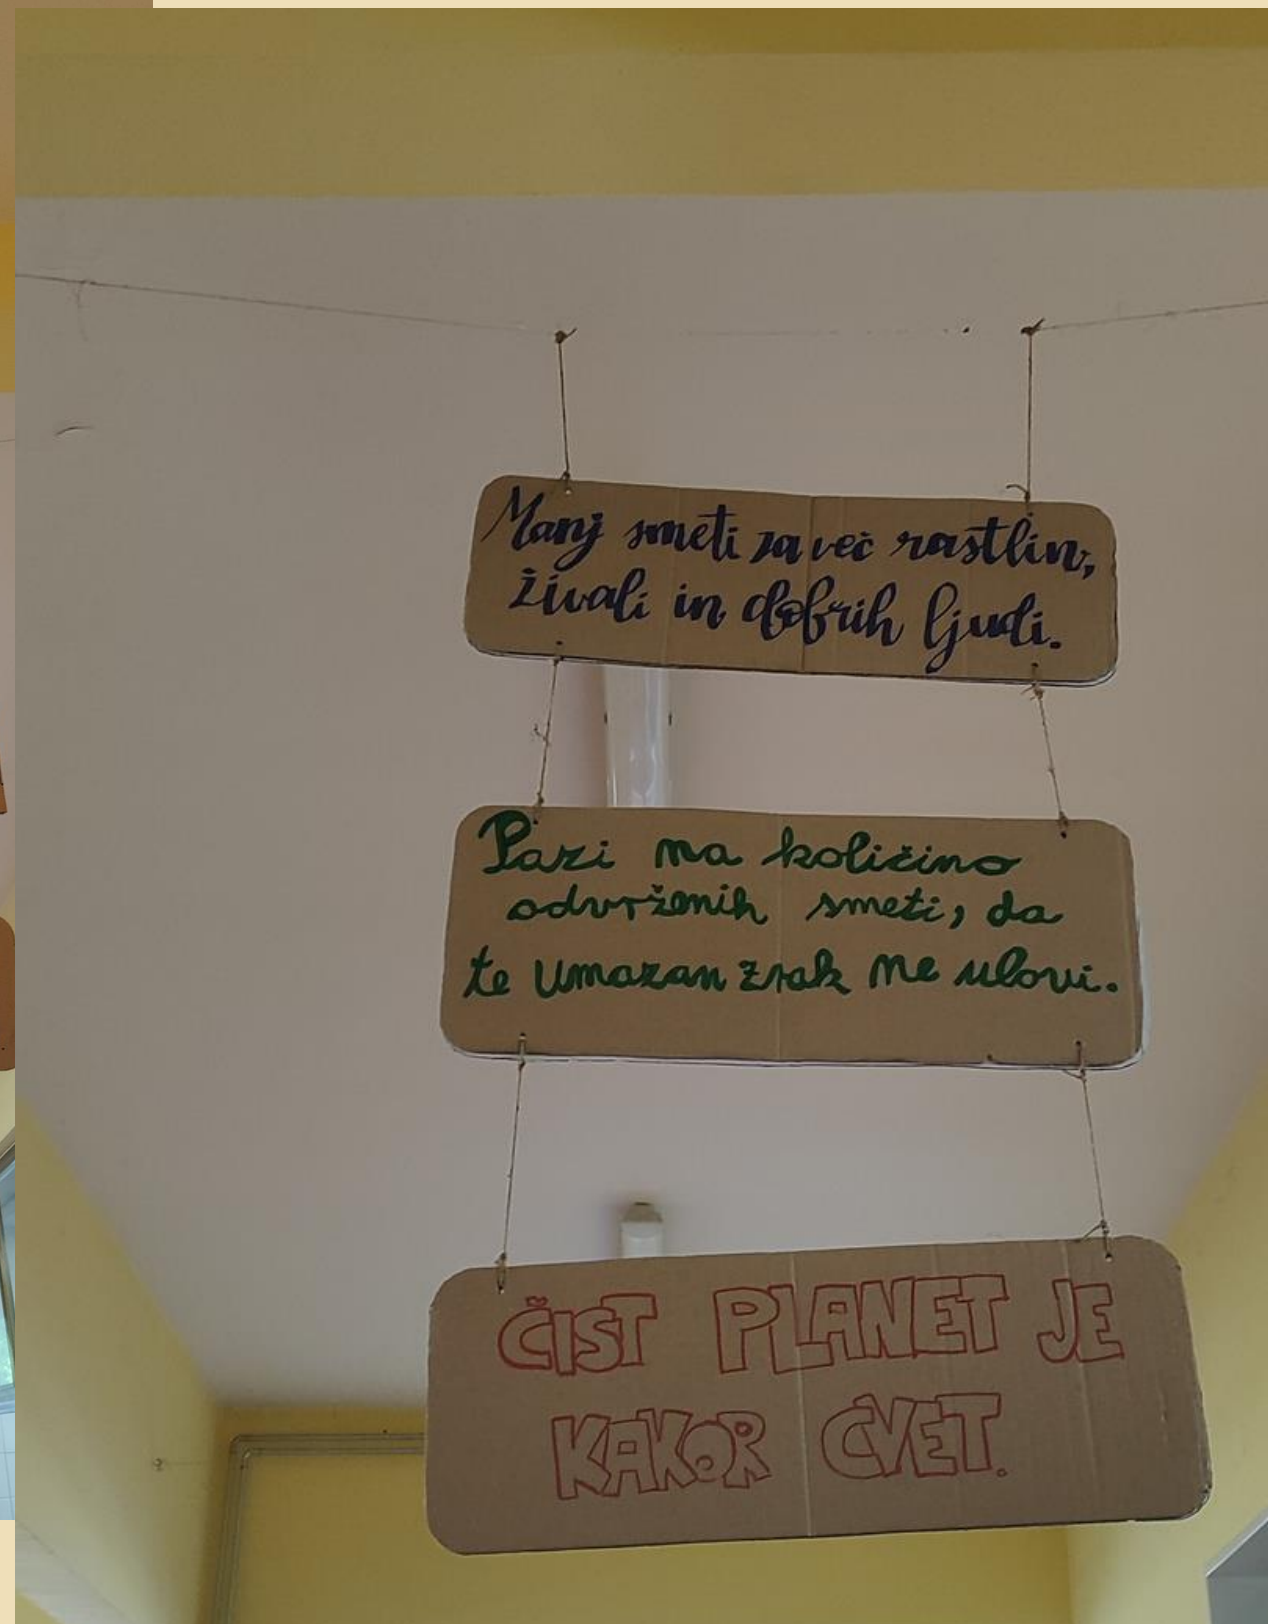 Manj smeti za več rastlin,
živali in dobrih ljudi.
Pazi na količino
odvrženih smeti, da
te umazan zrak ne ulovi.
ČIST PLANET JE
KAKOR CVET.